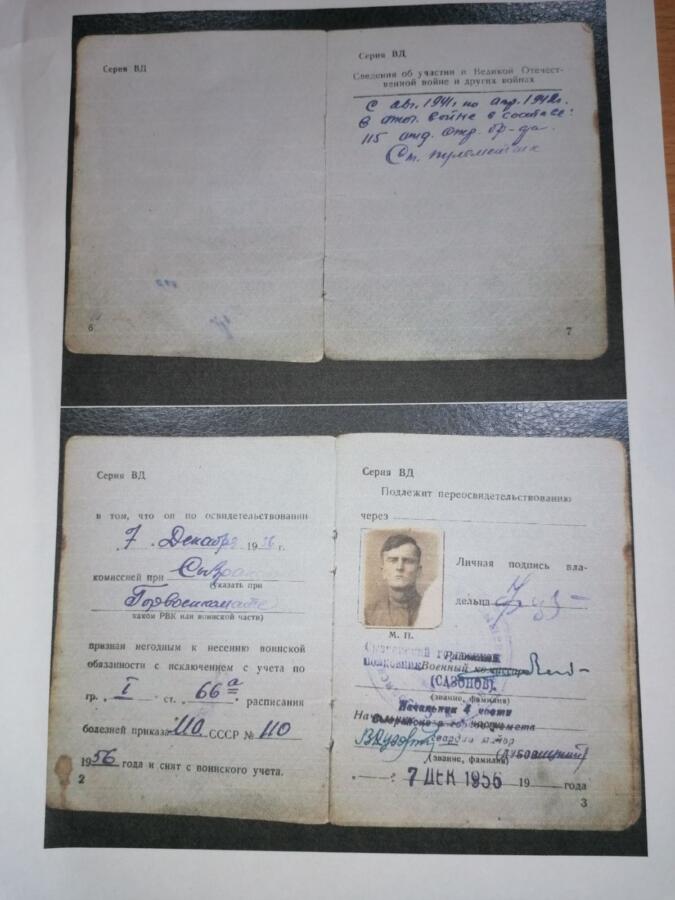 Серия ВД
6
Серия ВД
Сведения об участии в Великой Отечест-
венной войне и других войнах
С авг. 1941г по апр. 1942г.
в отеч. войне в составе:
115 отд. стр. бр-да.
Ст. пулеметчик
7
Серия ВД
в том, что он по освидетельствовании
7 Декабря 1956 г.
комиссией при Сызран
(указать при
Горвоенкомате
каком РВК или воинской части)
признан негодным к несению воинской
обязанности с исключением с учета по
гр. I ст. 66а расписания
болезней приказа МО СССР № 110
1956 года и снят с воинского учета.
2
Серия ВД
Подлежит переосвидетельствованию
через
Личная подпись вла-
дельца
М. П.
Сызранский городской
Полковник Военный комиссар
(САЗОНОВ)
(звание, фамилия)
Начальник 4 части
Сызранского горвоенкомата
гвардии майор
(ДУБОВИЦКИЙ)
(звание, фамилия)
7 ДЕК 1956 19 года
3